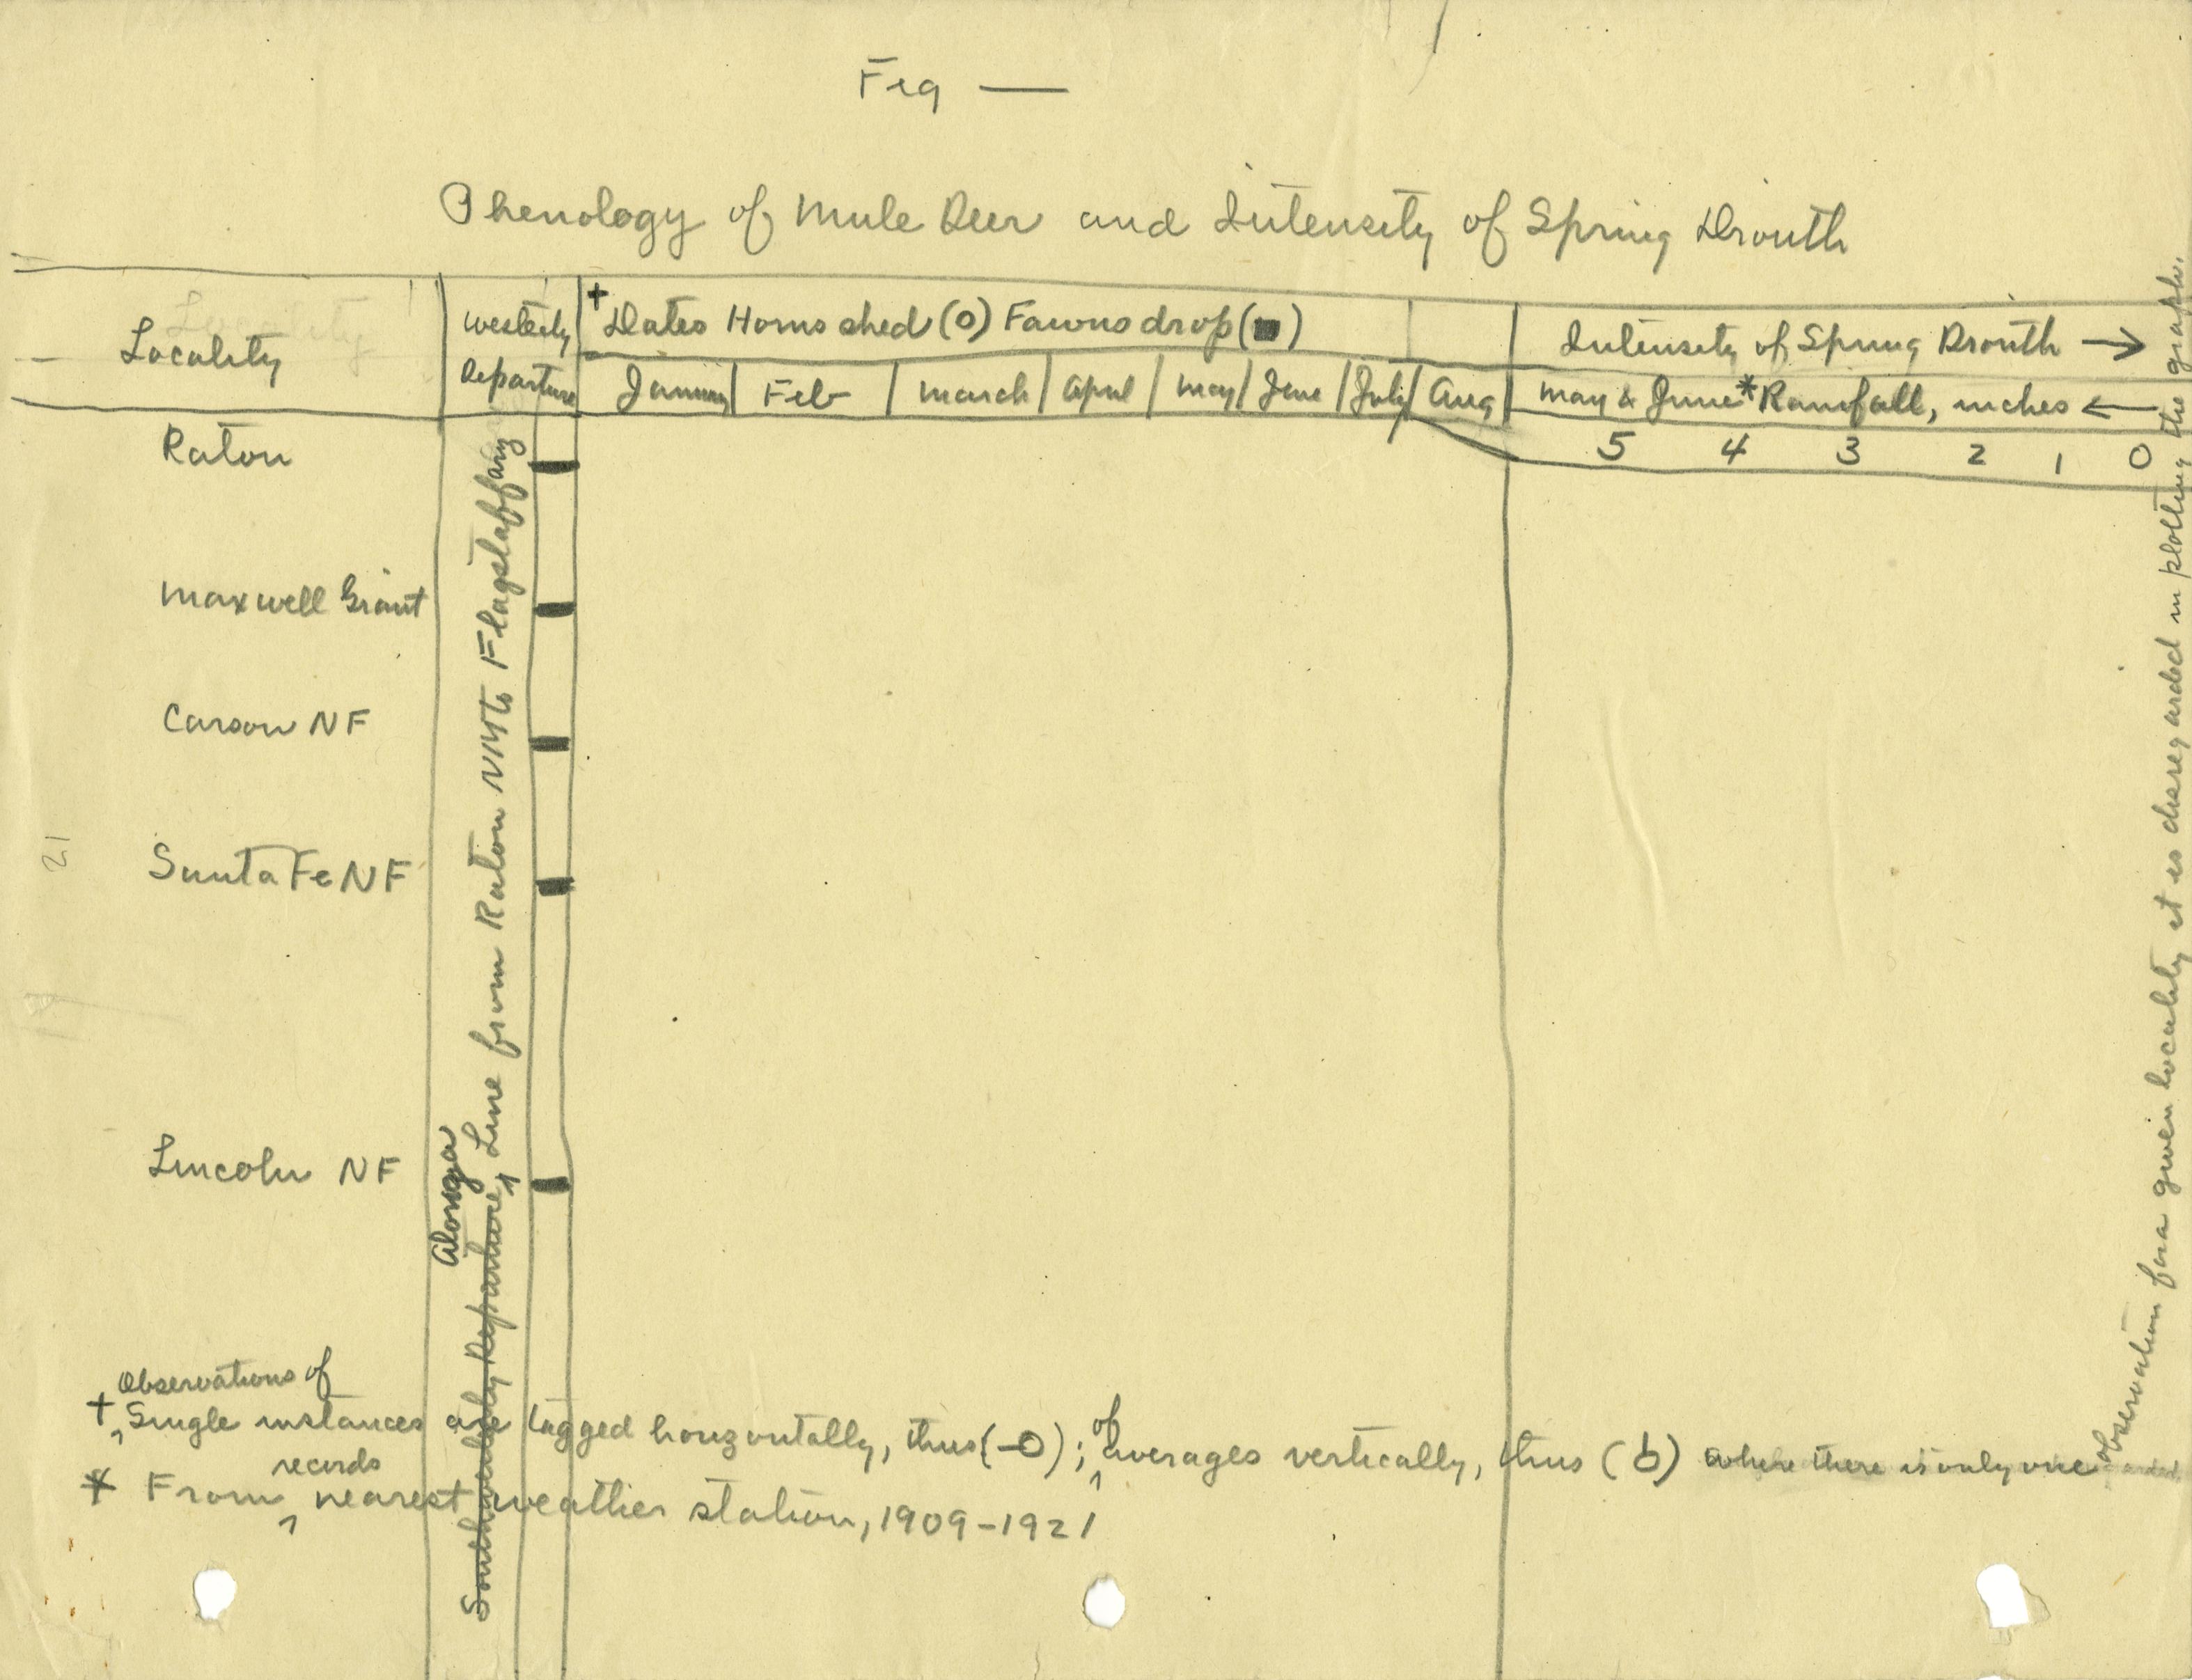 Fig —
Phenology of Mule Deer and Intensity of Spring Drouth
Locality
Westerly Departure
† Dates Horns shed (o) Fawns drop (■)
Intensity of Spring Drouth →
January Feb March April May June July Aug
May & June * Rainfall, inches ←
5 4 3 2 1 0
Raton
Maxwell Grant
Carson NF
Santa Fe NF
Lincoln NF
21
Southwesterly Departure, Along a Line from Raton NM to Flagstaff Ariz
† Observations of Single instances are tagged horizontally, thus (-o); of averages vertically, thus (b) where there is only one
observation for a given locality it is disregarded in plotting the graph.
* From records nearest weather station, 1909-1921